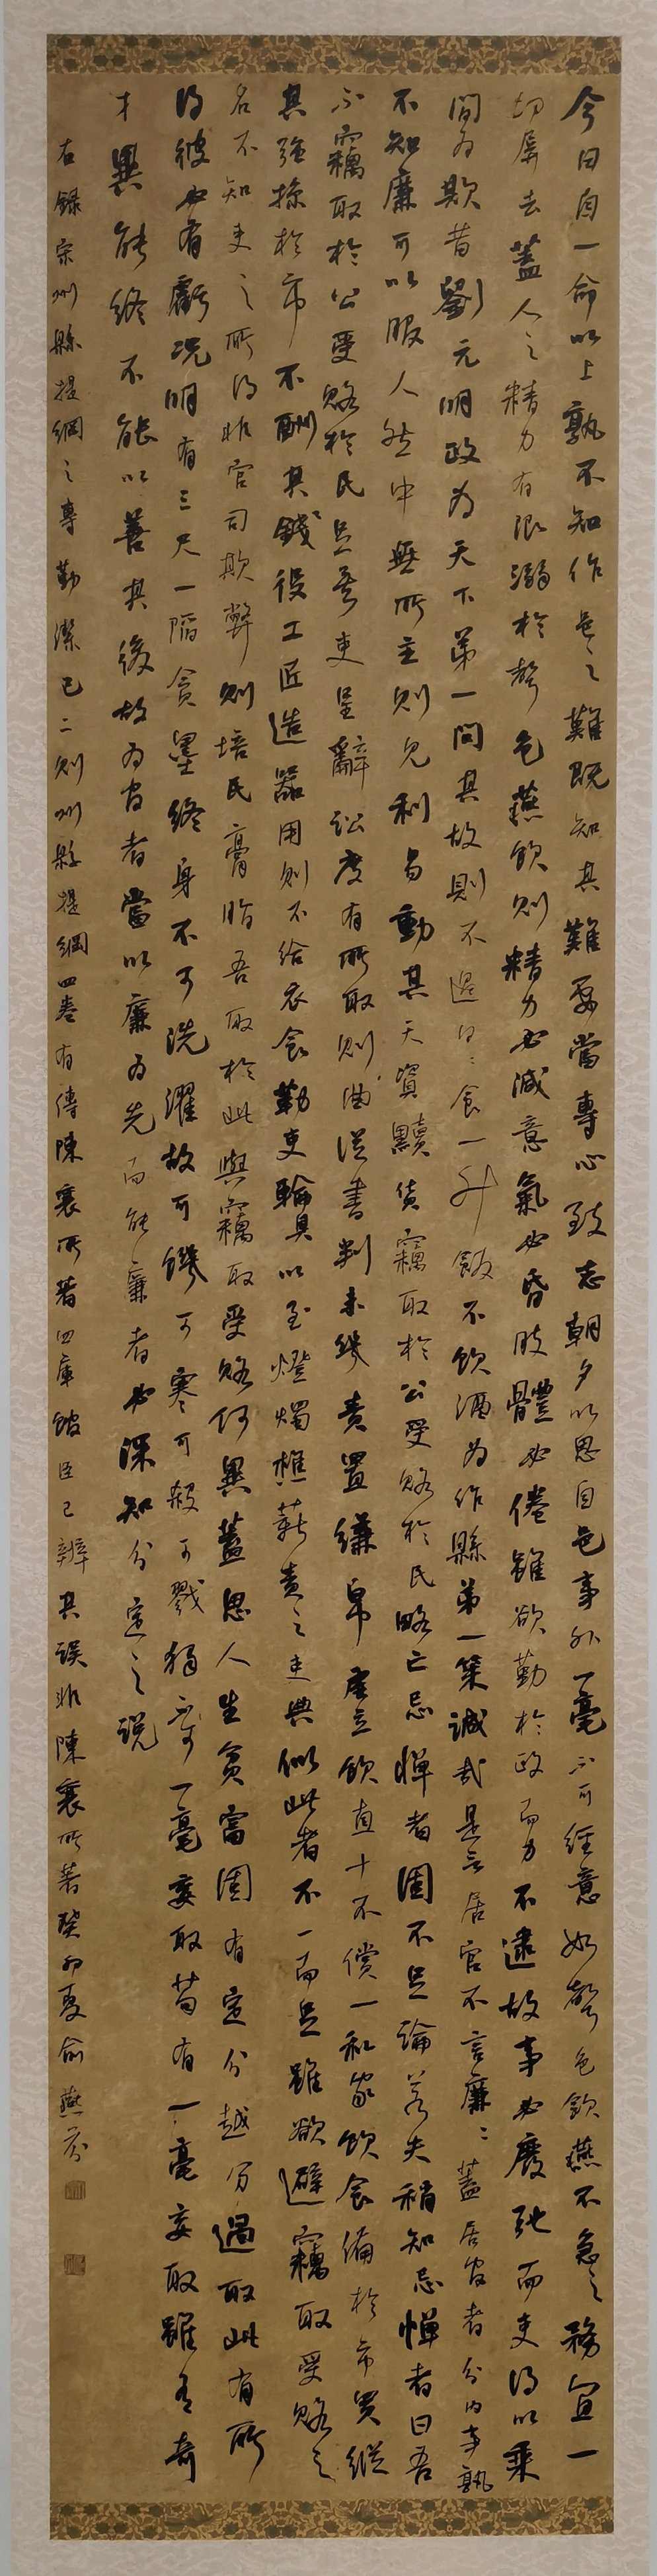 今日自一命以上孰不知作邑之難既知其難要當專心致志朝夕以思自邑事外一毫不可經意如聲色飲燕不急之務宜一
切屏去蓋人之精力有限溺於聲色燕飲則精力必減意氣必昏肢體必倦雖欲勤於政而力不逮故事必廢弛而吏得以乘
間為欺昔劉元明政為天下第一問其故則不過曰日食一升飯不飲酒為作縣第一策誠哉是言居官不言廉廉蓋居官者分內事孰
不知廉可以服人然中無所主則見利易動其天資黷貨竊取於公受賂於民略亡忌憚者固不足論若夫稍知忌憚者曰吾
不竊取於公受賂於民足矣吏呈辭訟度有所取則曲從書判未幾責置縑帛虛立領直十不償一私家飲食備於市買縱
其強掠於市不酬其錢役工匠造器用則不給衣食勒吏輪具以至燈燭樵薪責之吏典似此者不一而足雖欲避竊取受賂之
名不知吏之所得非官司欺弊則掊民膏脂吾取於此與竊取受賂何異蓋思人生貧富固有定分越分過取此有所
得彼必有虧況明有三尺一陷貪墨終身不可洗濯故可饑可寒可殺可戮獨不可一毫妄取苟有一毫妄取雖有奇
才異能終不能以善其後故為官者當以廉為先而能廉者必深知分定之說
右錄宋州縣提綱之專勤潔己二則州縣提綱四卷有傳陳襄所著四庫館臣已辨其誤非陳襄所著癸卯夏俞燕芬